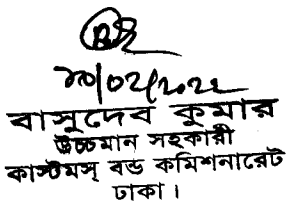 ২০/০২/২০২২
বাসুদেব কুমার
উচ্চমান সহকারী
কাস্টমস্ বন্ড কমিশনারেট
ঢাকা।